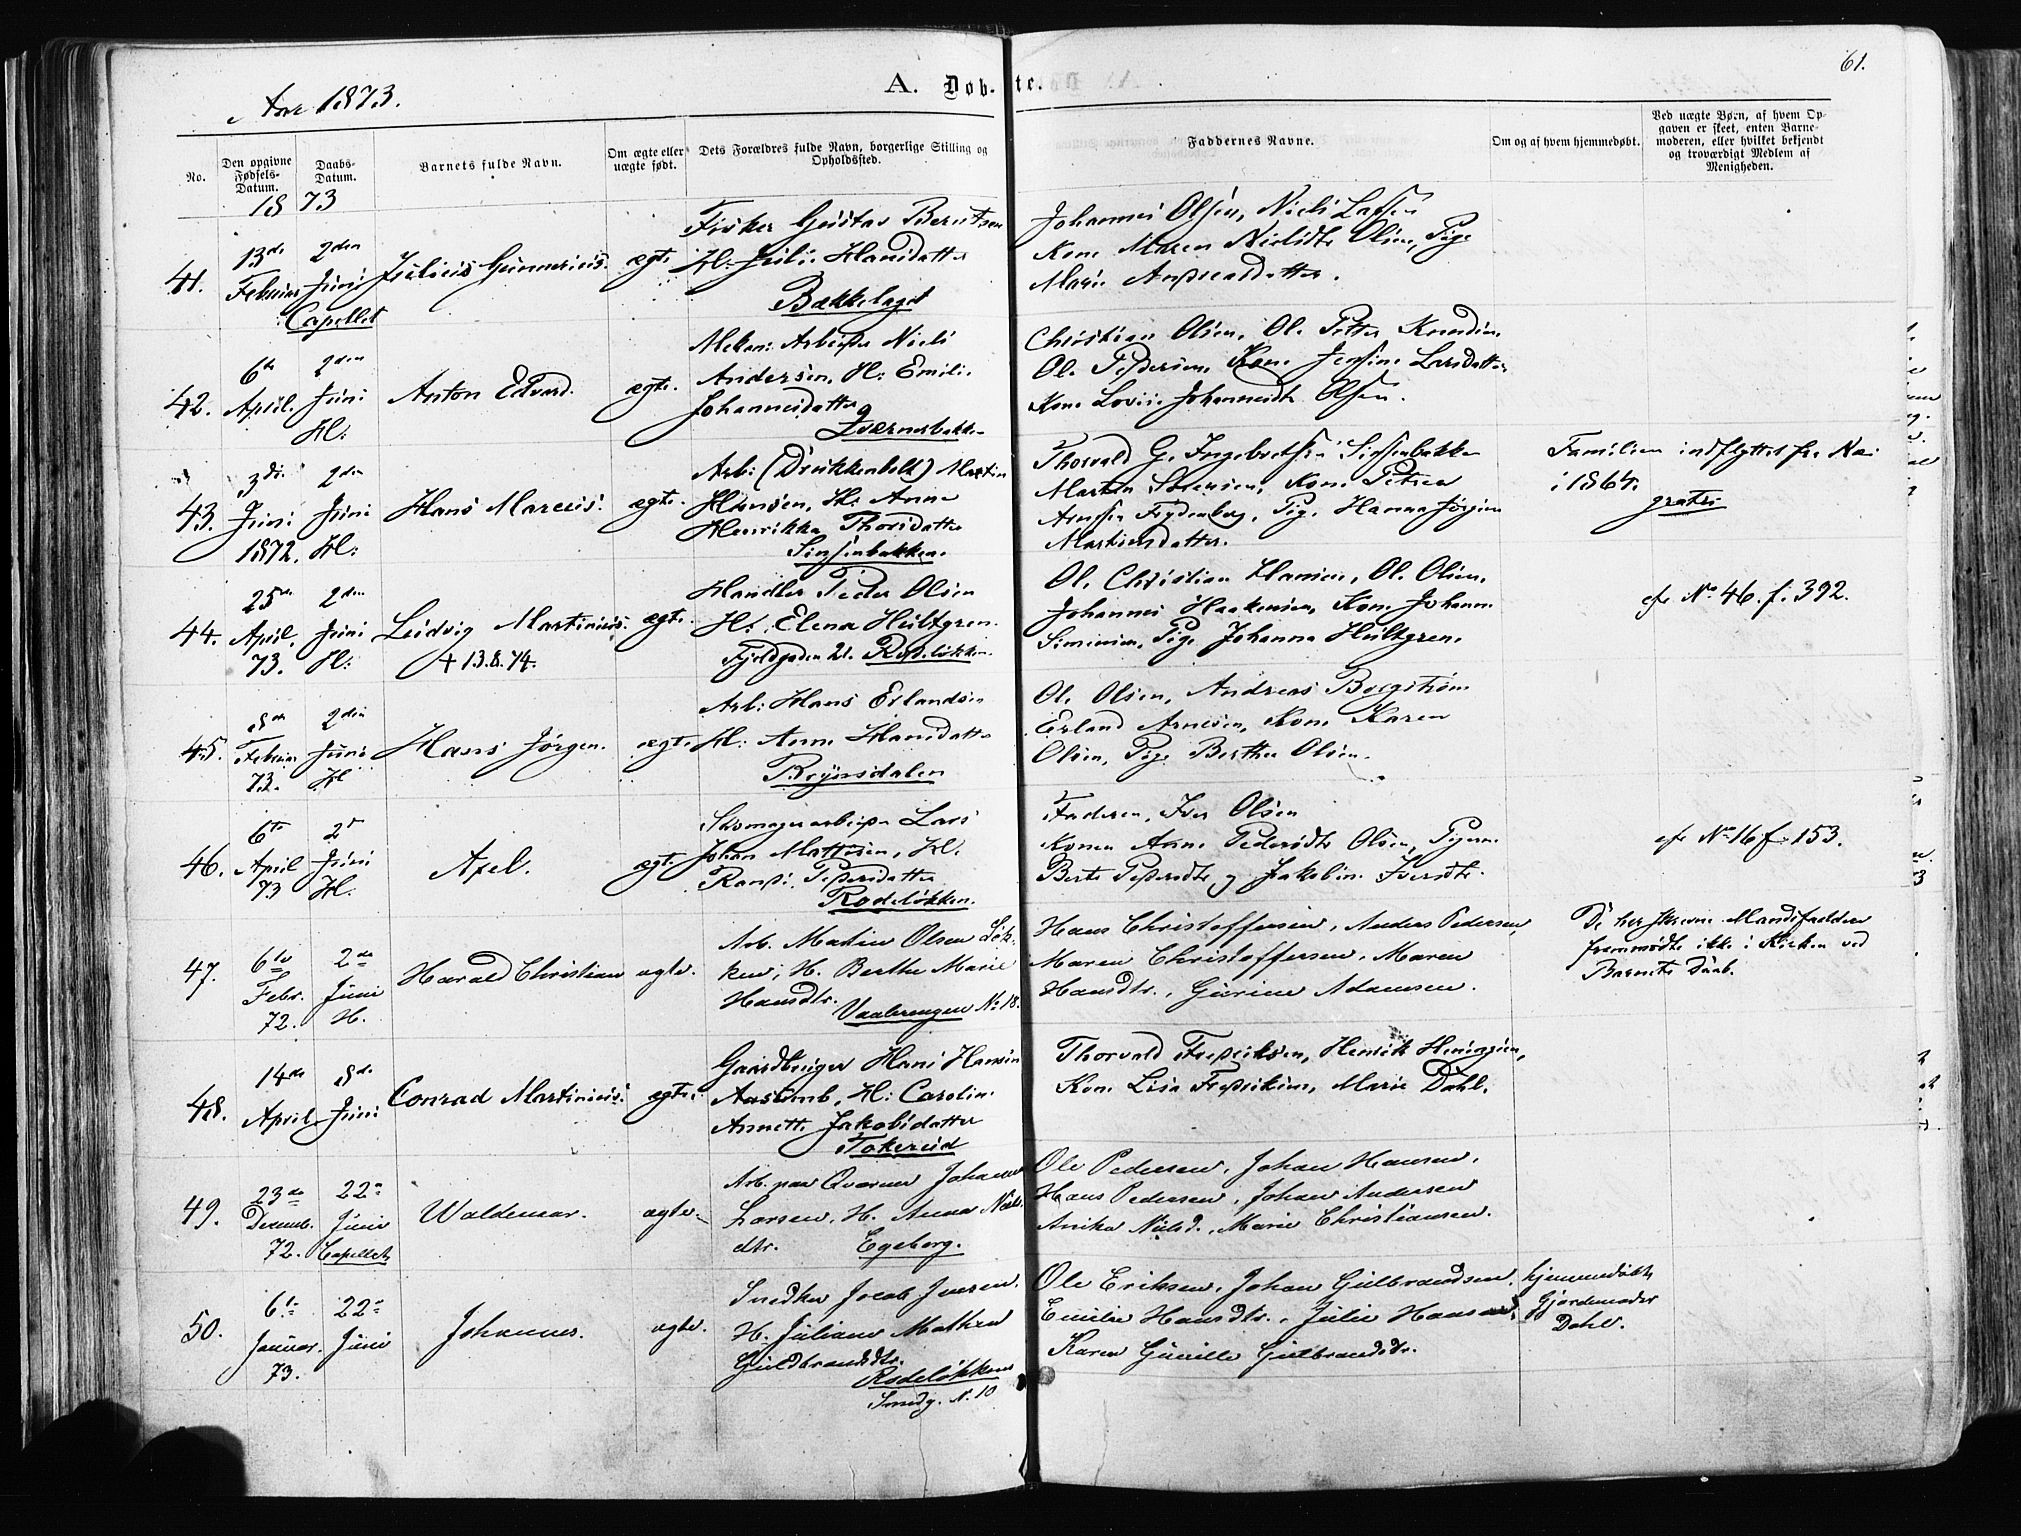 61.
Aar 1873.
A. Døbte.
No.
Den opgivne Fødsels-Datum.
Daabs-Datum.
Barnets fulde Navn.
Om ægte eller uægte født.
Dets Forældres fulde Navn, borgerlige Stilling og Opholdssted.
Faddernes Navne.
Om og af hvem hjemmedøbt.
Ved uægte Børn, af hvem Opgaven er skeet, enten Barnemoderen, eller hvilket bekjendt og troværdigt Medlem af Menigheden.
1873
41.
13de Februar
2den Juni
Capellet
Julius Gunnerius.
ægte
Fisker Gustav Berntsen
H: Julie Hansdatter
Bækkelaget
Johannes Olsen, Niels Larsen
Kone Maren Nielsdtr Olsen, Pige
Marie Andreasdatter.
42.
6te April.
2den Juni
H:
Anton Edvard.
ægte.
Mekan: Arbeider Niels
Andersen, H: Emilie
Johannesdatter
Kværnerbakken
Christian Olsen, Ole Petter Knudsen
Ole Pedersen, Kone Jensine Larsdatter
Kone Lovise Johannesdtr Olsen.
43.
3die Juni 1872.
2den Juni
H:
Hans Marcus.
ægte.
Arb: (Drukkenbolt) Martin
Hansen, H: Anne
Henrikke Thorsdatter
Sinsenbakken.
Thorvald G. Ingebretsen Sinsenbakken
Martin Sørensen, Kone Petrea
Arnesen Frydenberg, Pige Hanna Jørgine
Martinsdatter.
Familien indflyttet fra
i 1864.
gratis
44.
25de April. 73.
2den Juni
H:
Ludvig Martinius.
+ 13.8.74.
ægte.
Handler Peder Olsen
H: Elena Hultgren.
Fjeldgaden 21. Rodeløkken.
Ole Christian Hansen, Ole Olsen,
Johannes Haakensen, Kone Johanne
Simensen, Pige Johanna Hultgren.
cfr No 46. f. 392.
45.
8de Februar 73.
2den Juni
H
Hans Jørgen.
ægte.
Arb: Hans Erlandsen
H: Anne Hansdatter
Brynsdalen
Ole Olsen, Andreas Borgstrøm
Erland Arnesen, Kone Karen
Olsen, Pige Berthe Olsen.
46.
6te April 73
2den Juni
H.
Axel.
ægte.
Skomagerarbeider Lars
Johan Mathisen, H.
Randi Pedersdatter
Rodeløkken.
Faderen, Iver Olsen
Konen Anne Pedersdtr Olsen, Pigerne
Berte Pedersdtr og Jakobine Iversdtr.
cfr No 16 f. 153.
47.
6te Febr. 72.
2den Juni
H.
Harald Christian
ægte.
Arb. Martin Olsen Løkken, H. Berthe Marie
Hansdtr. Vaalerengen No 18.
Hans Christoffersen, Anders Pedersen,
Maren Christoffersen, Maren
Hansdtr., Gurine Adamsen.
De her skrevne Mandsfaddere
fremmødte ikke i Kirken ved
Barnets Daab.
48.
14de April
8de Juni
Conrad Martinius.
ægte.
Gaardbruger Hans Hansen
H: Caroline
Annette Jakobsdatter
Tokerud
Thorvald Fredriksen, Henrik Henriksen,
Kone Lisa Fredriksen, Marie Dahl.
49.
23de Decemb. 72.
22de Juni
Capellet
Waldemar.
ægte.
Arb. paa Qværner Johannes
Larsen, H. Anna Nielsdtr. Egeberg.
Ole Pedersen, Johan Hansen,
Hans Pedersen, Johan Andersen
Anika Nielsd., Marie Christiansen.
50.
6te Januar. 73.
22de Juni
Johannes.
ægte.
Snedker Jacob Jensen,
H. Juliane Mathea
Guldbrandsdtr. Rodeløkken
Smedg. N. 10
Ole Eriksen, Johan Gulbrandsen,
Emilie Hansdtr., Julie Hansen,
Karen Gunille Gulbrandsdtr.
hjemmedøbt
Gjordemoder
Dahl.